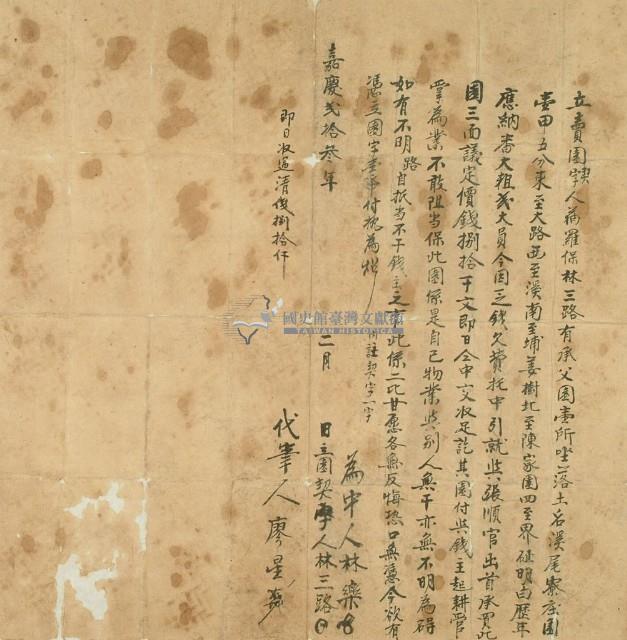 立賣園契字人為羅保林三路有承父園壹所坐落土名溪尾寮庄園
壹甲五分東至大路西至溪南至埔姜樹北至陳家園四至界址明白歷年
應納番大租弍大員今因乏錢欠費托中引就與張順官出首承買此
園三面議定價錢捌拾千文即日仝中交收足訖其園付與錢主起耕管
掌為業不敢阻当保此園係是自己物業與別人無干亦無不明為碍
如有不明路自抵当不干錢主之事此係二比甘愿各無反悔恐口無憑今欲有
憑立園字壹帋付挽為炤
再註契字一字
嘉慶弍拾叁年二月 日立園契字人林三路
即日收過清錢捌拾仟
為中人林樂
代筆人廖星
國史館臺灣文獻館
TAIWAN HISTORICA